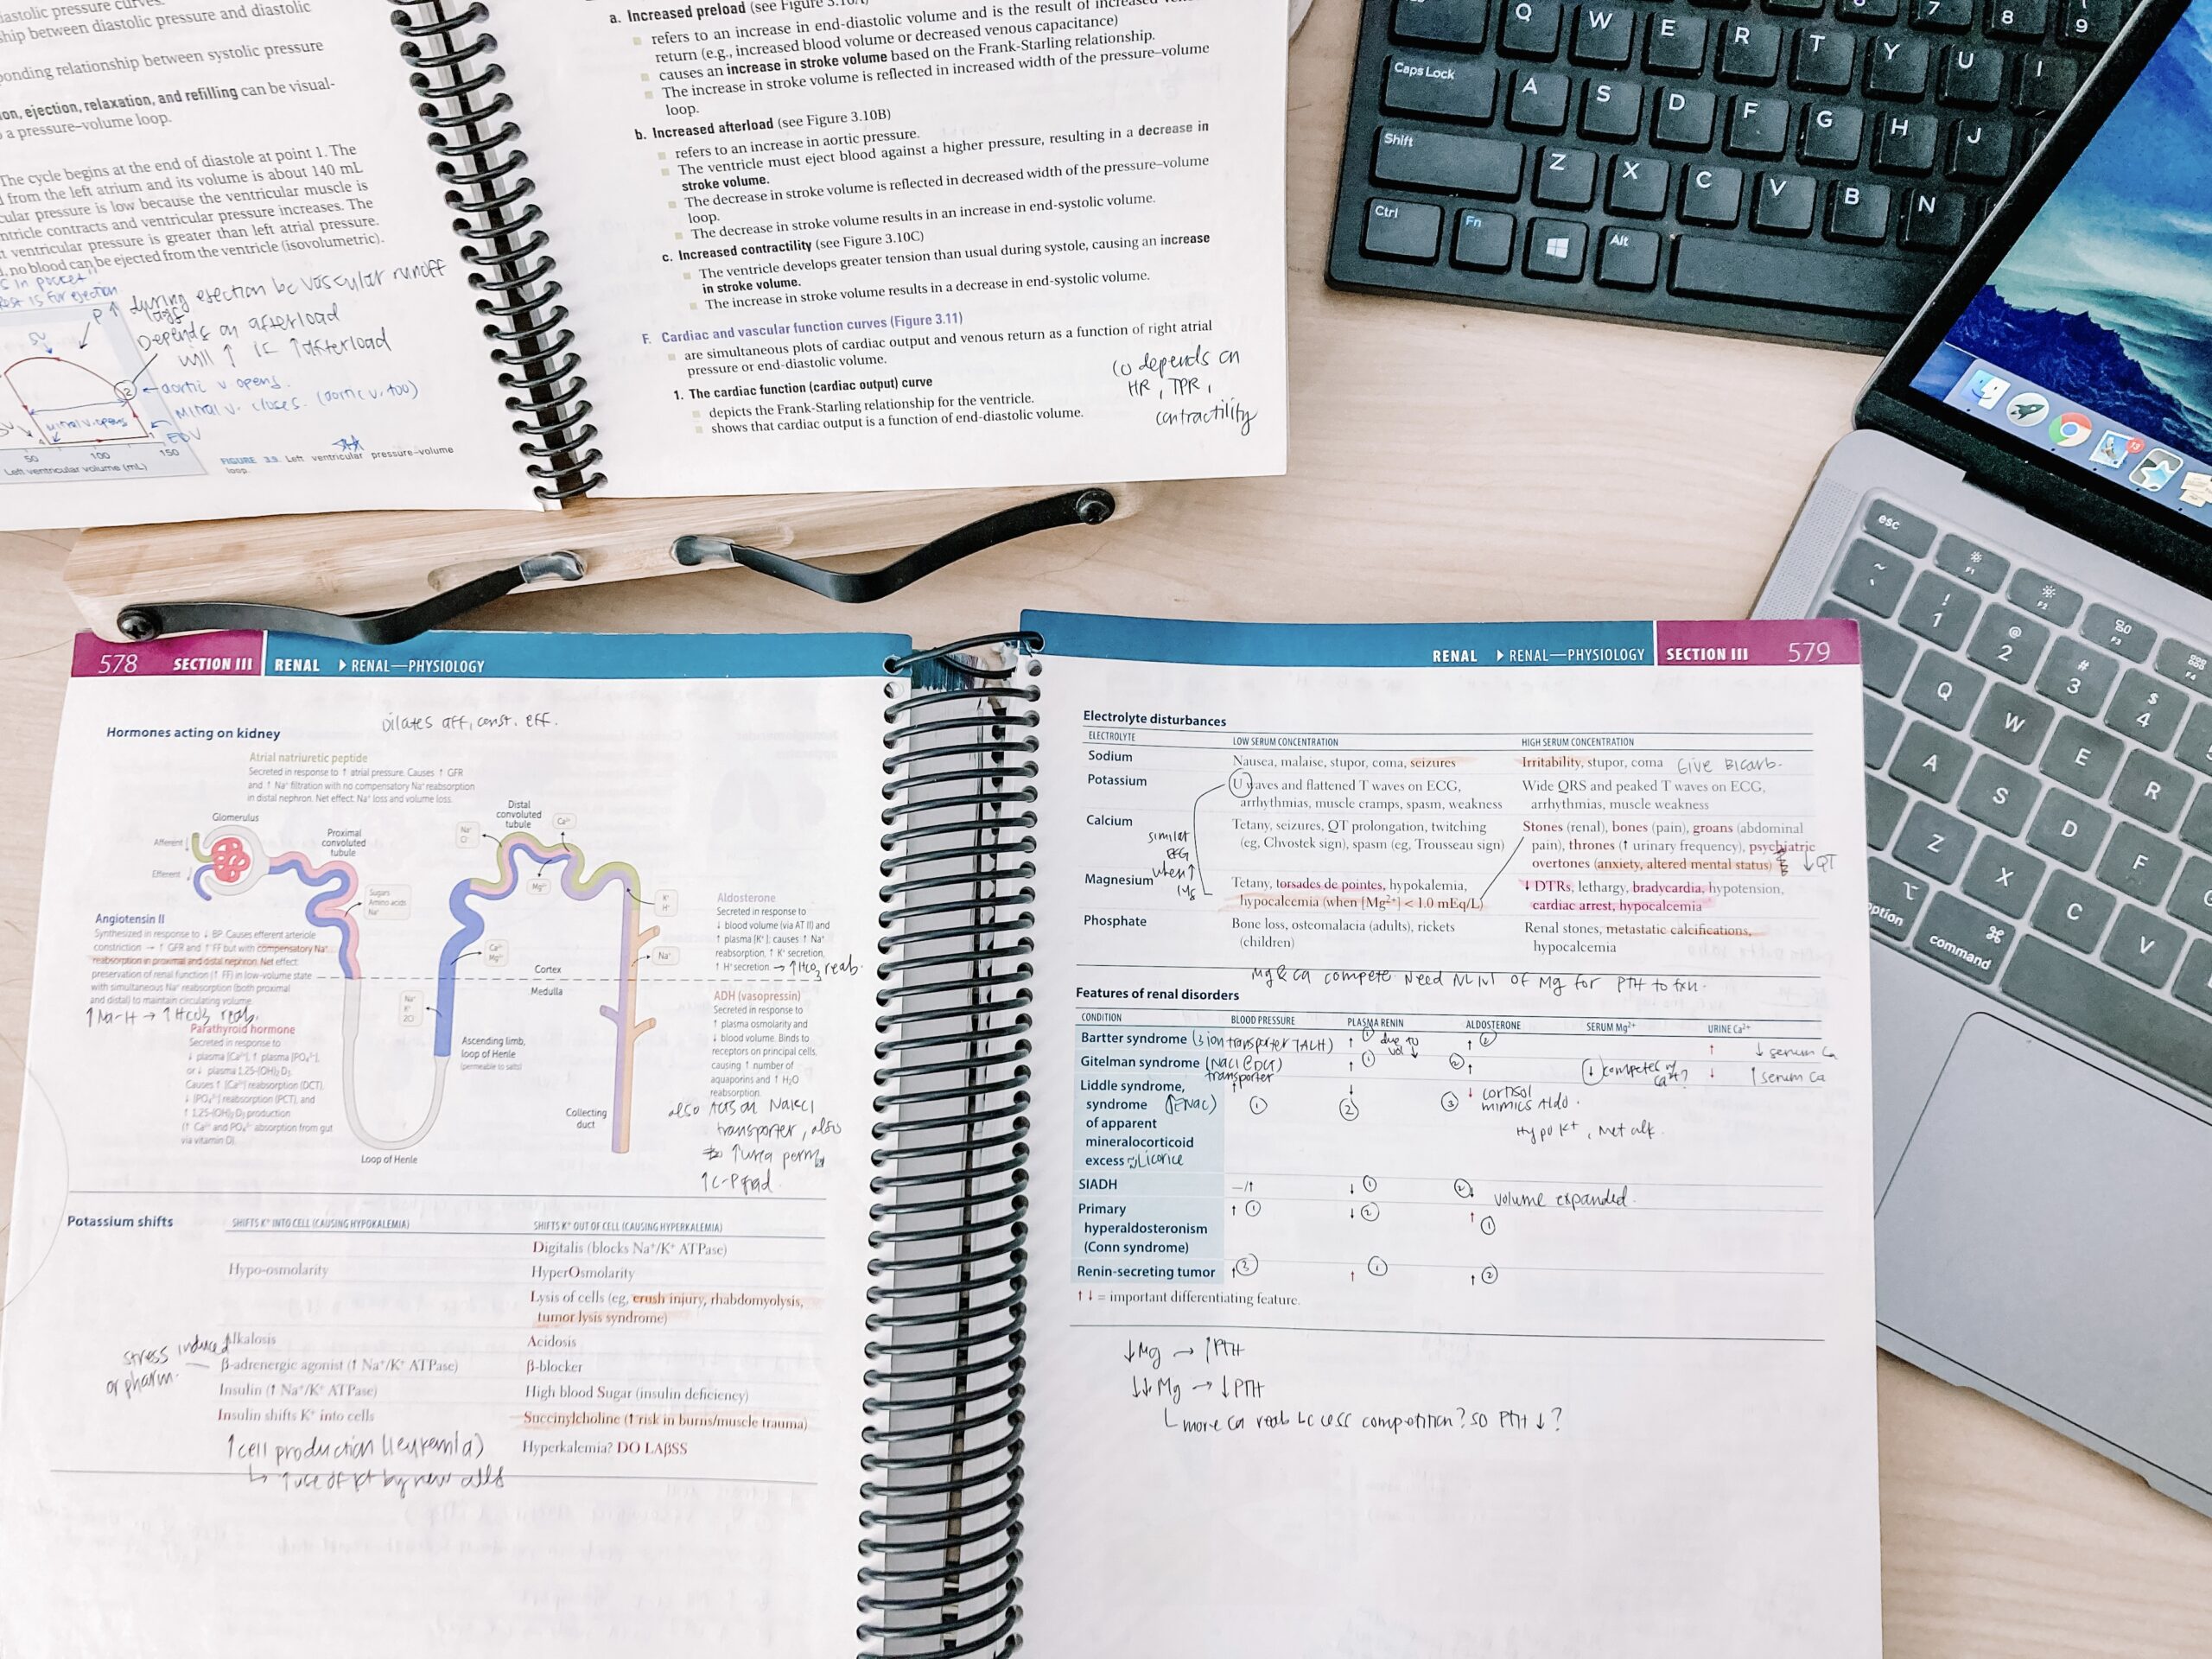 diastolic pressure curves.
ship between diastolic pressure and diastolic
ponding relationship between systolic pressure
ion, ejection, relaxation, and refilling can be visual-
a pressure–volume loop.
The cycle begins at the end of diastole at point 1. The
from the left atrium and its volume is about 140 mL
cular pressure is low because the ventricular muscle is
ntricle contracts and ventricular pressure increases. The
ventricular pressure is greater than left atrial pressure.
no blood can be ejected from the ventricle (isovolumetric).
in pocket"
is for ejection
P ↑ during ejection bc vascular runoff
lags
Depends on afterload
will ↑ if ↑ afterload
SV
2
aortic v opens.
mitral v. closes. (aortic v, too)
mitral v. opens
EDV
50 100 150
Left ventricular volume (mL)
FIGURE 3.9. Left ventricular pressure–volume
loop.
a. Increased preload (see Figure 3.10A)
refers to an increase in end-diastolic volume and is the result of increased
return (e.g., increased blood volume or decreased venous capacitance)
causes an increase in stroke volume based on the Frank-Starling relationship.
The increase in stroke volume is reflected in increased width of the pressure–volume
loop.
b. Increased afterload (see Figure 3.10B)
refers to an increase in aortic pressure.
The ventricle must eject blood against a higher pressure, resulting in a decrease in
stroke volume.
The decrease in stroke volume is reflected in decreased width of the pressure–volume
loop.
The decrease in stroke volume results in an increase in end-systolic volume.
c. Increased contractility (see Figure 3.10C)
The ventricle develops greater tension than usual during systole, causing an increase
in stroke volume.
The increase in stroke volume results in a decrease in end-systolic volume.
F. Cardiac and vascular function curves (Figure 3.11)
are simultaneous plots of cardiac output and venous return as a function of right atrial
pressure or end-diastolic volume.
1. The cardiac function (cardiac output) curve
depicts the Frank-Starling relationship for the ventricle.
shows that cardiac output is a function of end-diastolic volume.
CO depends on
HR, TPR,
contractility
7 8 9
Q W E R T Y U I
Caps Lock A S D F G H J
Shift Z X C V B N
Ctrl Fn Alt
13
esc F1 F2 F3 F4
~ ! 1 @ 2 # 3 $ 4
Q W E R
A S D F
Z X C V
option command ⌘
578 SECTION III RENAL ▶ RENAL—PHYSIOLOGY
Dilates aff, const. eff.
Hormones acting on kidney
Atrial natriuretic peptide
Secreted in response to ↑ atrial pressure. Causes ↑ GFR
and ↑ Na⁺ filtration with no compensatory Na⁺ reabsorption
in distal nephron. Net effect: Na⁺ loss and volume loss.
Glomerulus
Afferent
Efferent
Proximal
convoluted
tubule
Sugars
Amino acids
Na⁺
Distal
convoluted
tubule
Na⁺
Cl⁻
Ca²⁺
Mg²⁺
K⁺
H⁺
Na⁺
Ca²⁺
Mg²⁺
Na⁺
K⁺
2Cl⁻
Cortex
Medulla
Ascending limb,
loop of Henle
(permeable to salts)
Collecting
duct
Loop of Henle
Angiotensin II
Synthesized in response to ↓ BP. Causes efferent arteriole
constriction → ↑ GFR and ↑ FF but with compensatory Na⁺
reabsorption in proximal and distal nephron. Net effect:
preservation of renal function (↑ FF) in low-volume state
with simultaneous Na⁺ reabsorption (both proximal
and distal) to maintain circulating volume.
↑Na-H → ↑HCO3 reab.
Parathyroid hormone
Secreted in response to
↓ plasma [Ca²⁺], ↑ plasma [PO₄³⁻],
or ↓ plasma 1,25-(OH)₂ D₃.
Causes ↑ [Ca²⁺] reabsorption (DCT),
↓ [PO₄³⁻] reabsorption (PCT), and
↑ 1,25-(OH)₂ D₃ production
(↑ Ca²⁺ and PO₄³⁻ absorption from gut
via vitamin D).
Aldosterone
Secreted in response to
↓ blood volume (via AT II) and
↑ plasma [K⁺]; causes ↑ Na⁺
reabsorption, ↑ K⁺ secretion,
↑ H⁺ secretion. → ↑HCO3 reab.
ADH (vasopressin)
Secreted in response to
↑ plasma osmolarity and
↓ blood volume. Binds to
receptors on principal cells,
causing ↑ number of
aquaporins and ↑ H₂O
reabsorption.
also acts on NaKCl
transporter, also
↑urea perm
↑C-P grad.
Potassium shifts
SHIFTS K⁺ INTO CELL (CAUSING HYPOKALEMIA) SHIFTS K⁺ OUT OF CELL (CAUSING HYPERKALEMIA)
Digitalis (blocks Na⁺/K⁺ ATPase)
Hypo-osmolarity HyperOsmolarity
Lysis of cells (eg, crush injury, rhabdomyolysis,
tumor lysis syndrome)
Alkalosis Acidosis
stress induced
or pharm.
β-adrenergic agonist (↑ Na⁺/K⁺ ATPase) β-blocker
Insulin (↑ Na⁺/K⁺ ATPase) High blood Sugar (insulin deficiency)
Insulin shifts K⁺ into cells Succinylcholine (↑ risk in burns/muscle trauma)
Hyperkalemia? DO LAβSS
↑cell production (leukemia)
↳ ↑use of K+ by new cells
RENAL ▶ RENAL—PHYSIOLOGY SECTION III 579
Electrolyte disturbances
ELECTROLYTE LOW SERUM CONCENTRATION HIGH SERUM CONCENTRATION
Sodium Nausea, malaise, stupor, coma, seizures Irritability, stupor, coma Give Bicarb.
Potassium U waves and flattened T waves on ECG, Wide QRS and peaked T waves on ECG,
arrhythmias, muscle cramps, spasm, weakness arrhythmias, muscle weakness
Calcium Tetany, seizures, QT prolongation, twitching Stones (renal), bones (pain), groans (abdominal
(eg, Chvostek sign), spasm (eg, Trousseau sign) pain), thrones (↑ urinary frequency), psychiatric
overtones (anxiety, altered mental status) ↓QT
similar
EKG
when ↑
Mg
Magnesium Tetany, torsades de pointes, hypokalemia, ↓ DTRs, lethargy, bradycardia, hypotension,
hypocalcemia (when [Mg²⁺] < 1.0 mEq/L) cardiac arrest, hypocalcemia
Phosphate Bone loss, osteomalacia (adults), rickets Renal stones, metastatic calcifications,
(children) hypocalcemia
Mg & Ca compete. Need NL lvl of Mg for PTH to fxn.
Features of renal disorders
CONDITION BLOOD PRESSURE PLASMA RENIN ALDOSTERONE SERUM Mg²⁺ URINE Ca²⁺
Bartter syndrome (3 ion transporter TALH) ↑ ① due to vol ↓ ↑ ② ↑ ↓ serum Ca
Gitelman syndrome (NaCl @ DCT) transporter ↑ ① ② ↑ ↓ competes w/ Ca²⁺? ↓ ↑ serum Ca
Liddle syndrome, ↑ ↓ ↓ cortisol
syndrome (↑ENaC) ① ② ③ mimics Aldo.
of apparent Hypo K+, Met alk.
mineralocorticoid
excess Licorice
SIADH —/↑ ↓ ① ② ↓ volume expanded.
Primary ↑ ① ↓ ② ↑ ①
hyperaldosteronism
(Conn syndrome)
Renin-secreting tumor ↑ ③ ↑ ① ↑ ②
↑ ↓ = important differentiating feature.
↓Mg → ↑PTH
↓↓Mg → ↓PTH
more Ca reab bc less competition? so PTH ↓?